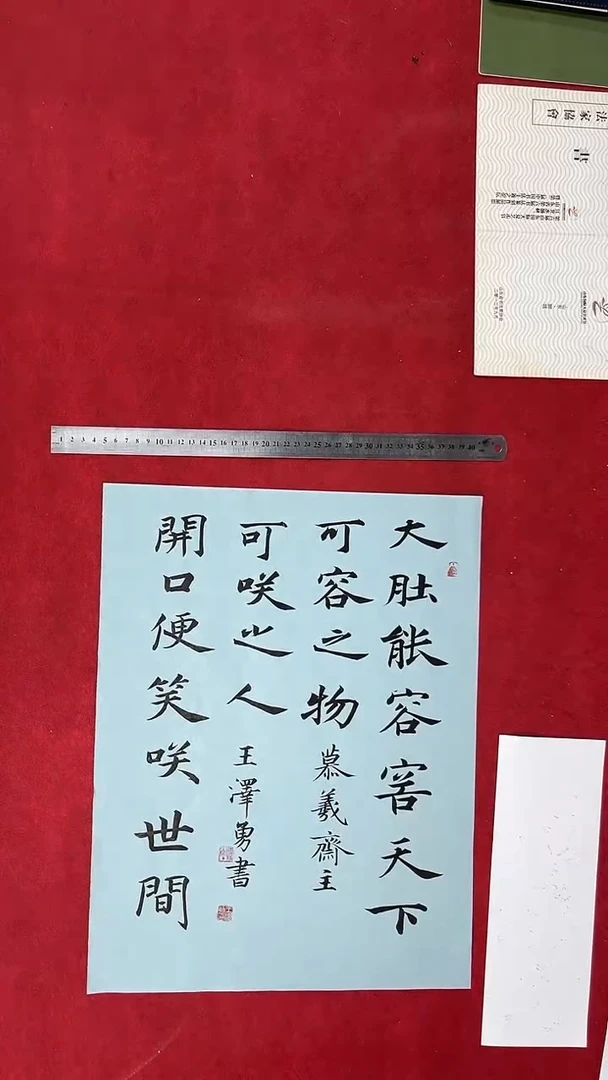 大肚能容窖天下
可容之物
慕羲齋主
可咲之人
王澤勇書
開口便笑咲世間
1 2 3 4 5 6 7 8 9 10 11 12 13 14 15 16 17 18 19 20 21 22 23 24 25 26 27 28 29 30 31 32 33 34 35 36 37 38 39 40
法家協會
書